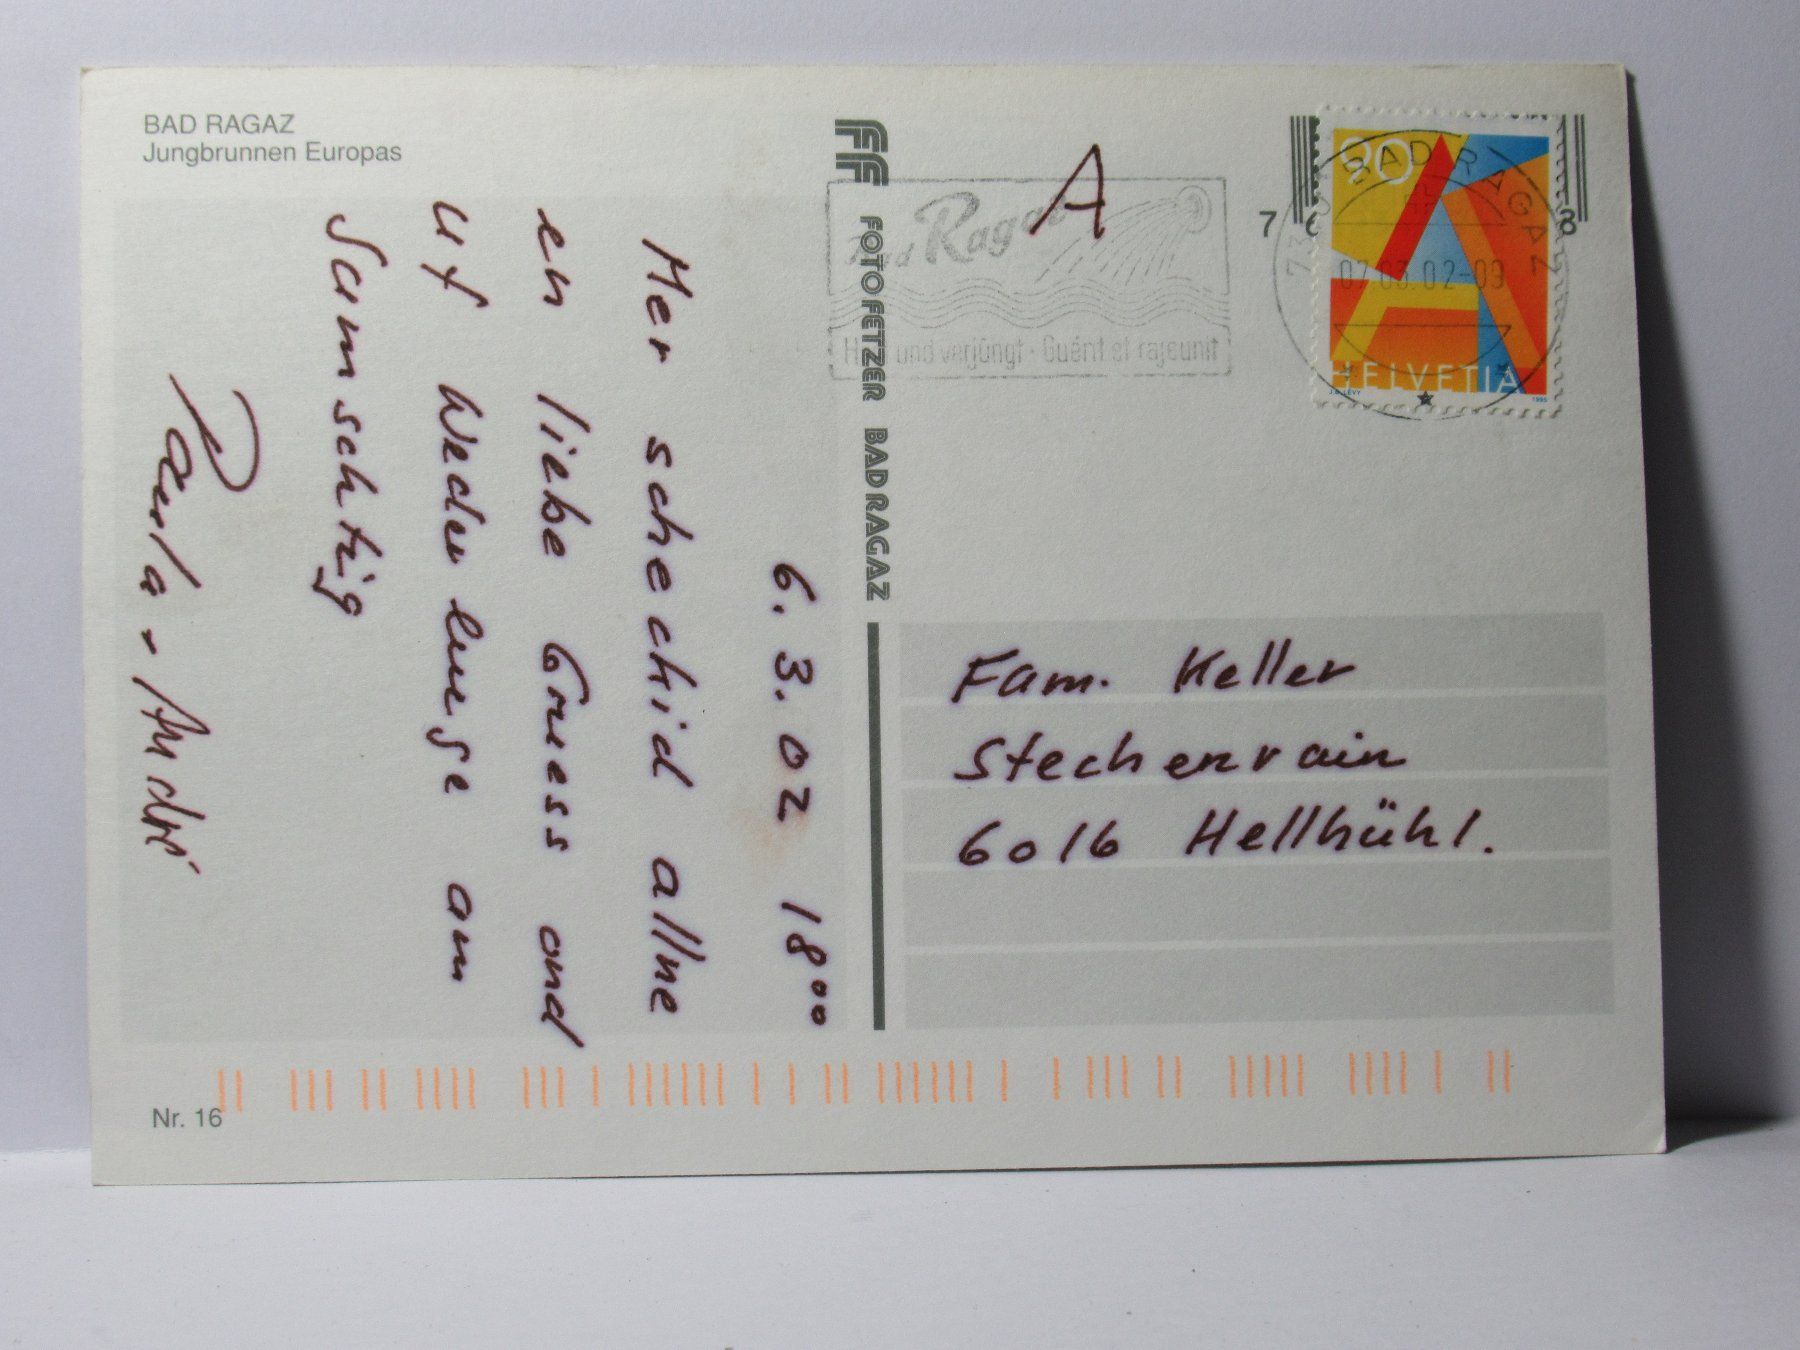 BAD RAGAZ
Jungbrunnen Europas
6. 3. 02 18⁰⁰
Mer schechid allne
en liebe Gruess ond
uf Weder luege am
Samschtig
Paula - Andri
Nr. 16
FF FOTO FETZER BAD RAGAZ
A
Bad Ragaz
Heilt und verjüngt · Guérit et rajeunit
7
8
90
BAD RAGAZ
07.03.02-09
HELVETIA
J.B. LEVY 1995
Fam. Keller
Stechenrain
6016 Hellbühl.